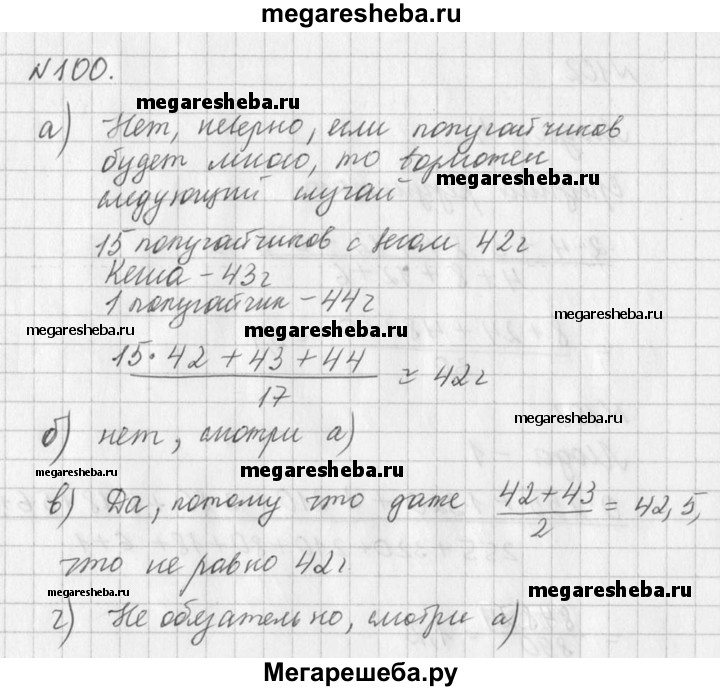 megaresheba.ru
№100.
megaresheba.ru
а) Нет, неверно, если попугайчиков
будет много, то возможен
megaresheba.ru
следующий случай
15 попугайчиков с весом 42г
Кеша - 43г
1 попугайчик - 44г
megaresheba.ru
megaresheba.ru
megaresheba.ru
15·42 + 43 + 44 / 17 ≈ 42г
megaresheba.ru
б) нет, смотри а)
megaresheba.ru
megaresheba.ru
в) Да, потому что даже 42+43 / 2 = 42,5,
что не равно 42г.
megaresheba.ru
г) Не обязательно, смотри а)
Мегарешеба.ру